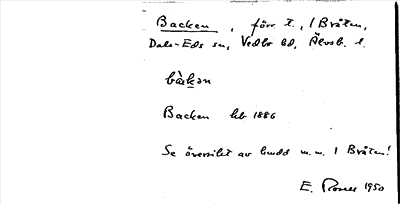 Backen, förr t., 1 Bråten,
Dals-Eds sn, Vedbo hd, Älvsb. l.
bàkən
Backen hb 1886
Se översikt av bundd m.m. 1 Bråten!
E. Rosell 1950